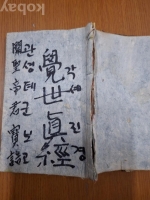 kobay
각세진경
覺世眞經
관성테군보고
關聖帝君寶誥